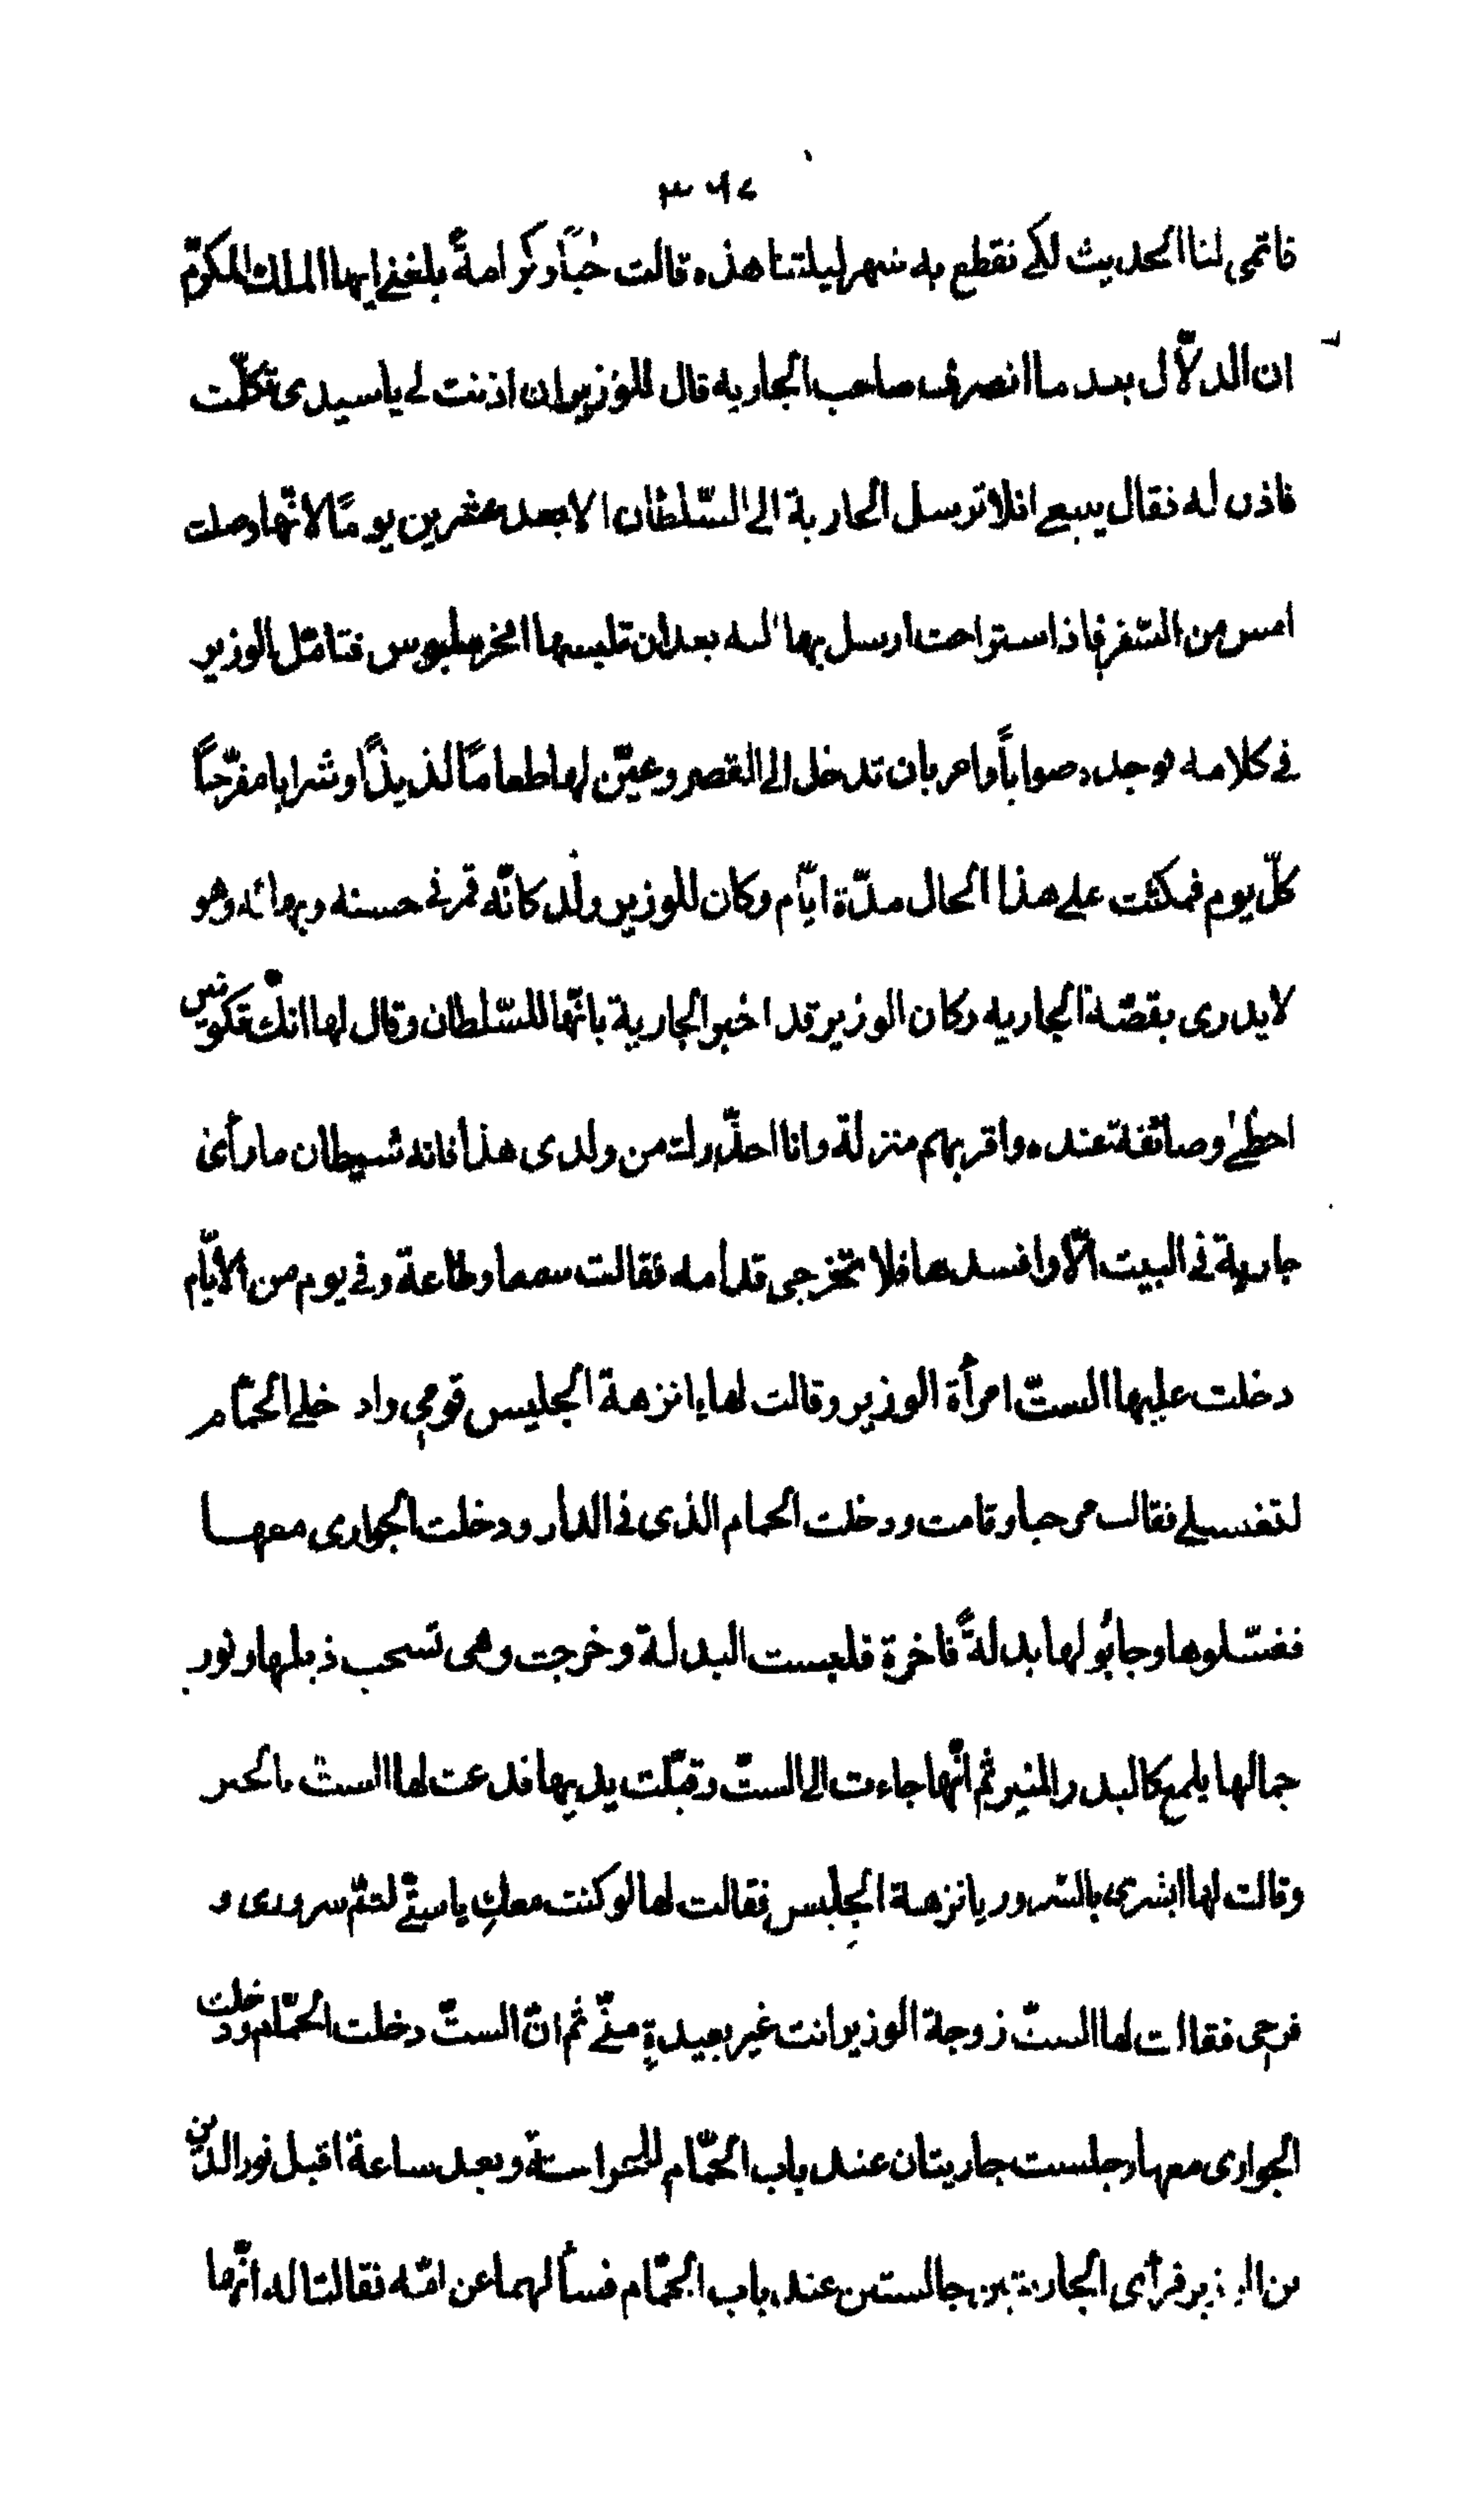 ٣٦٧
فاتمى لنا الحديث لكى نقطع به سهر ليلتنا هذه قالت حُبّاً وكرامةً بلغنى ايها الملك المكرّم
ان الدلّال بعد ما انصرف صاحب الجاريه قال للوزير ان اذنت لى ياسيدى تكلّمت
فاذن له فقال ينبغى ان لا ترسل الجارية الى السّلطان الا بعد عشرين يومًا لانّها وصلت
امس من السّفر فاذا استراحت ارسل بها اليه بعد ان تلبسها افخر ملبوس فتامّل الوزير
فى كلامه فوجده صواباً وامر بان تدخل الى القصر وعيّن لها طعامًا لذيذًا وشرابا مفرّحًا
كلّ يوم فمكثت على هذا الحال مدّة ايّام وكان للوزير ولد كانّه قمر فى حسنه وبهائه وهو
لا يدرى بقصّة الجاريه وكان الوزير قد اخبر الجارية بانّها للسّلطان وقال لها انّك تكونين
احظى وصائفه عنده واقربهم منزلة وانا احذّرك من ولدى هذا فانه شيطان ما رأى
جارية فى البيت الّا وافسدها فلا تخرجى قدامه فقالت سمعا وطاعة وفى يوم من الايّام
دخلت عليها الستّ امرأة الوزير وقالت لها يا نزهة الجليس قومى واد خلى الحمّام
لتغتسلى فقالت مرحبا وقامت ودخلت الحمام الذى فى الدار ودخلت الجوارى معها
فغسّلوها وجابُو لها بدلةً فاخرة فلبست البدلة وخرجت وهى تسحب ذيلها ونور
جمالها يلمع كالبدر المنير ثم انّها جاءت الى الستّ وقبّلت يديها فدعت لها الستّ بالخير
وقالت لها ابشرى بالسّرور يا نزهة الجليس فقالت لها لو كنت معكِ ياستّى لتمّ سرورى و
فرحى فقالت لها الستّ زوجة الوزير انت غير بعيدةٍ منّى ثم انّ الستّ دخلت الحمّام ودخلت
الجوارى معها وجلست جاريتان عند باب الحمّام للحراسة وبعد ساعة اقبل نور الدّين
بن الوزير فرأى الجاريتين جالستين عند باب الحمّام فسألهما عن امّه فقالتا له انّها